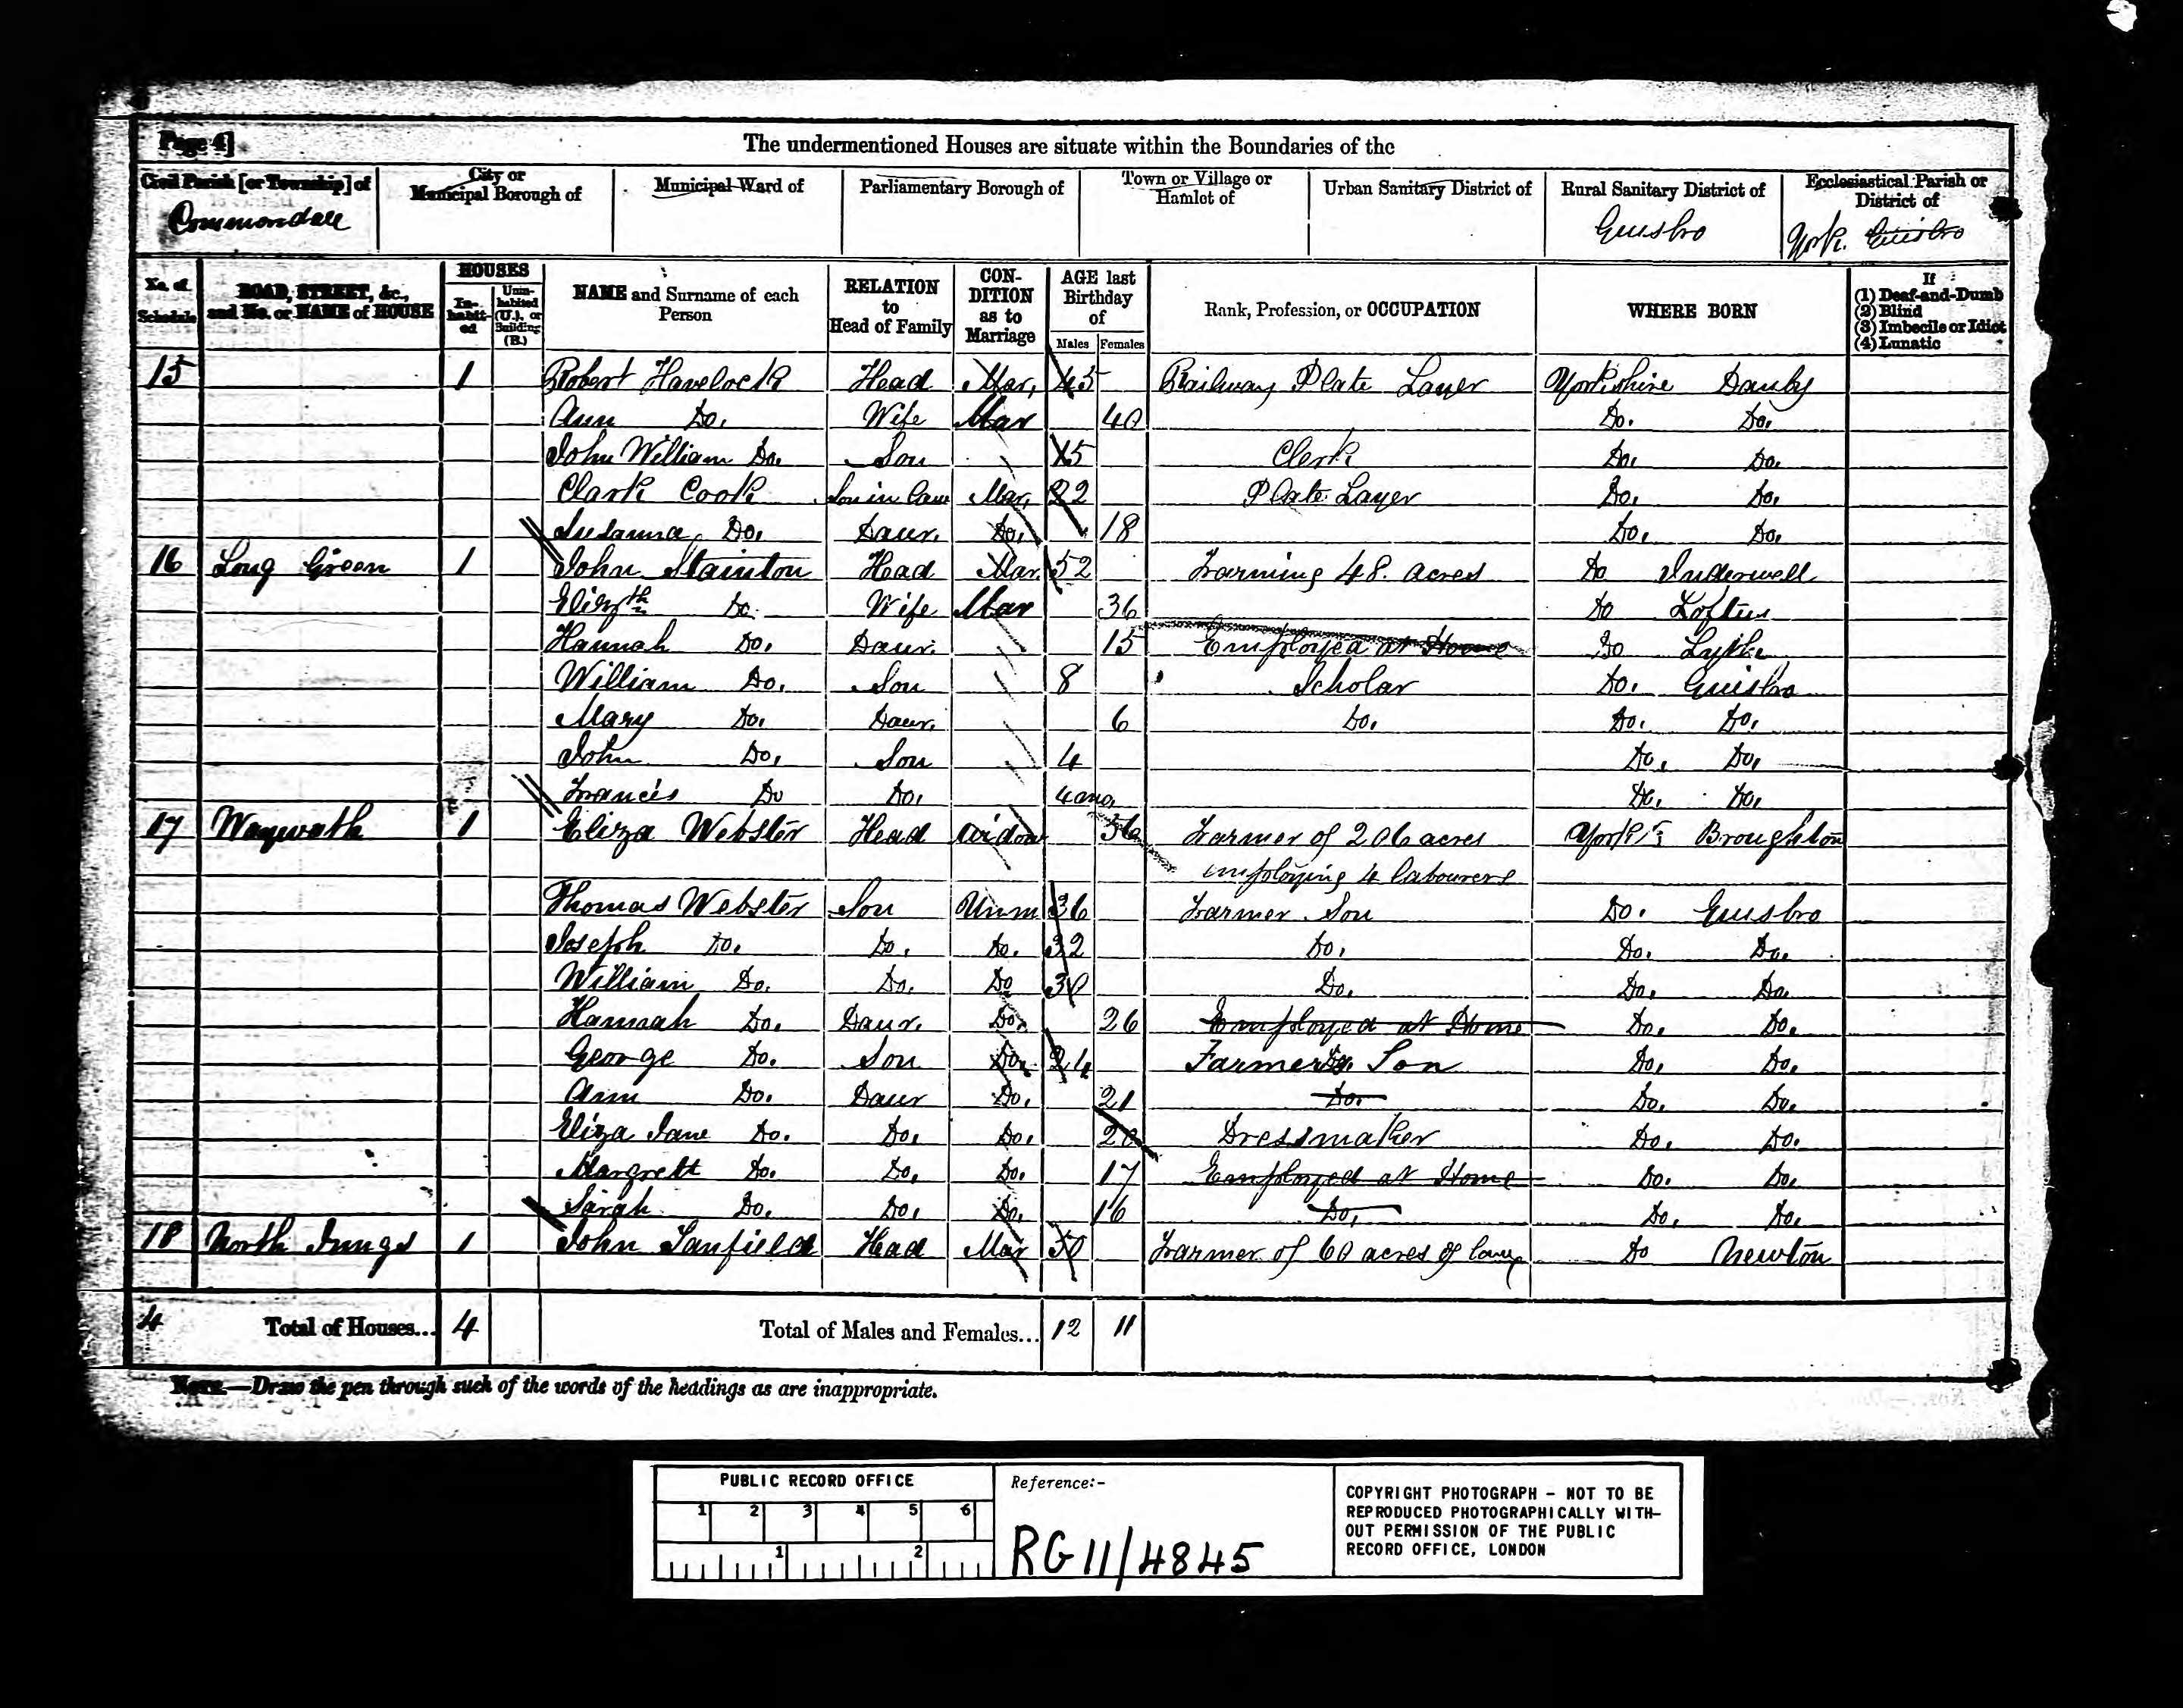 Page 4]
The undermentioned Houses are situate within the Boundaries of the
Civil Parish [or Township] of
City or Municipal Borough of
Municipal Ward of
Parliamentary Borough of
Town or Village or Hamlet of
Urban Sanitary District of
Rural Sanitary District of
Ecclesiastical Parish or District of
Commondale Guisbro York. Guisbro
No. of Schedule
ROAD, STREET, &c., and No. or NAME of HOUSE
HOUSES
Inhabited
Uninhabited (U.), or Building (B.)
NAME and Surname of each Person
RELATION to Head of Family
CONDITION as to Marriage
AGE last Birthday of
Males Females
Rank, Profession, or OCCUPATION
WHERE BORN
If
(1) Deaf-and-Dumb
(2) Blind
(3) Imbecile or Idiot
(4) Lunatic
15 1 Robert Havelock Head Mar. 45 Railway Plate Layer Yorkshire Danby
Ann Do. Wife Mar 40 Do. Do.
John William Do. Son 15 Clerk Do. Do.
Clark Cook Son in Law Mar. 22 Plate Layer Do. Do.
Susanna Do. Daur. Do. 18 Do. Do.
16 Long Green 1 John Stainton Head Mar. 52 Farming 48 acres Do Inderwell
Elizth Do. Wife Mar 36 Do Loftus
Hannah Do. Daur. 15 Employed at Home Do Lythe
William Do. Son 8 Scholar Do. Guisbro
Mary Do. Daur. 6 Do. Do. Do.
John Do. Son 4 Do. Do.
Francis Do Do. 4 mo. Do. Do.
17 Wayworth 1 Eliza Webster Head Widow 56 Farmer of 206 acres Yorks. Broughton
employing 4 labourers
Thomas Webster Son Unm 36 Farmer Son Do. Guisbro
Joseph Do. Do. Do. 32 Do. Do. Do.
William Do. Do. Do 30 Do. Do. Do.
Hannah Do. Daur. Do. 26 Employed at Home Do. Do.
George Do. Son Do. 24 Farmers Son Do. Do.
Ann Do. Daur Do. 21 Do. Do. Do.
Eliza Jane Do. Do. Do. 20 Dressmaker Do. Do.
Margrett Do. Do. Do. 17 Employed at Home Do. Do.
Sarah Do. Do. Do. 16 Do. Do. Do.
18 North Ings 1 John Sanfield Head Mar 50 Farmer of 60 acres of Do Newton
4 Total of Houses... 4 Total of Males and Females... 12 11
NOTE.—Draw the pen through such of the words of the headings as are inappropriate.
PUBLIC RECORD OFFICE
1 2 3 4 5 6
1 2
Reference:-
RG 11/4845
COPYRIGHT PHOTOGRAPH - NOT TO BE
REPRODUCED PHOTOGRAPHICALLY WITH-
OUT PERMISSION OF THE PUBLIC
RECORD OFFICE, LONDON